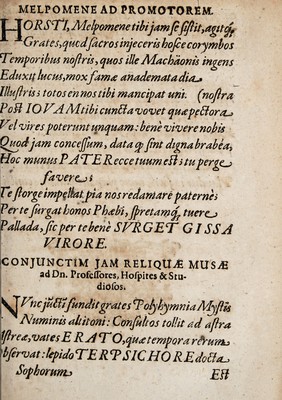 MELPOMENE AD PROMOTOREM.
HORSTI, Melpomene tibi jam se sistit, agitq́;
Grates, quod sacros injeceris hosce corymbos
Temporibus nostris, quos ille Machaonis ingens
Eduxit lucus, mox famæ anademata dia
Illustris: totos en nos tibi mancipat uni. (nostra
Post IOVAM tibi cuncta vovet quæ pectora
Vel vires poterunt unquam: benè vivere nobis
Quod jam concessum, data q́; sint digna brabéa,
Hoc munus PATER ecce tuum est: tu perge
favere;
Te storge impellat pia nos redamare paternè;
Per te surgat honos Phœbi, spretamq́; tuere
Pallada, sic per te benè SURGET GISSA
VIRORE.
CONJUNCTIM JAM RELIQUÆ MUSÆ
ad Dn. Professores, Hospites & Stu-
diosos.
NUnc juncti fundit grates Polyhymnia Mystis
Numinis altitoni: Consultos tollit ad astra
Astreæ, vates ERATO, quæ tempora rerum
Observat: lepido TERPSICHORE docta
Sophorum
Est